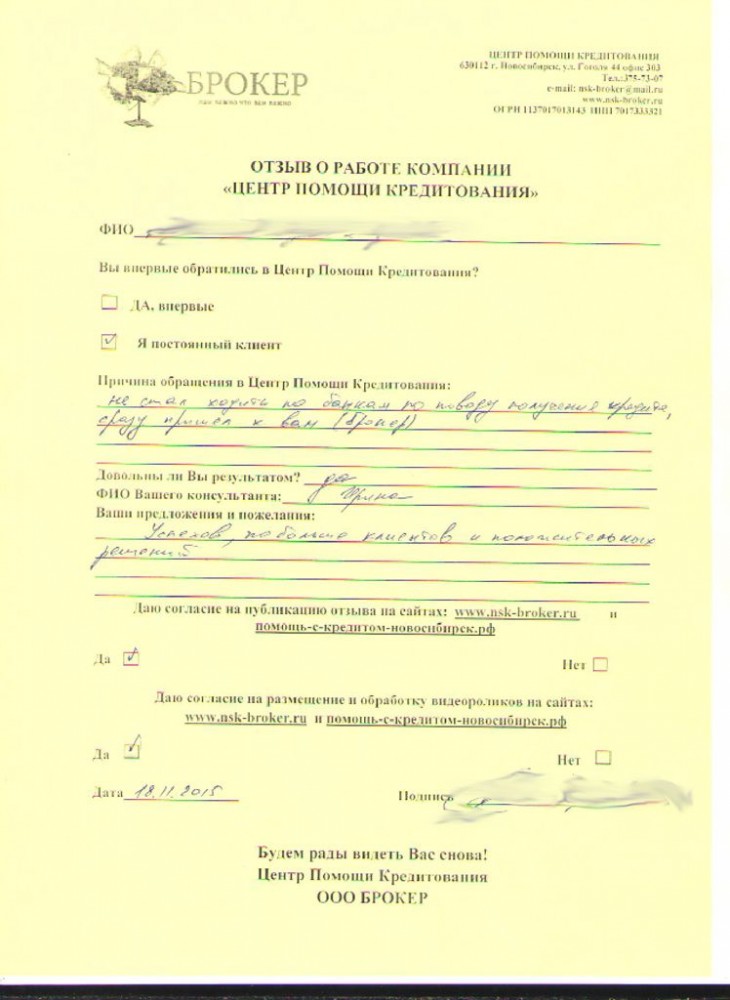 БРОКЕР
ЦЕНТР ПОМОЩИ КРЕДИТОВАНИЯ
630112 г. Новосибирск, ул. Гоголя 44 офис 303
Тел.:375-73-07
e-mail: nsk-broker@mail.ru
www.nsk-broker.ru
ОГРН 1137017013143 ИНН 7017333321
ОТЗЫВ О РАБОТЕ КОМПАНИИ
«ЦЕНТР ПОМОЩИ КРЕДИТОВАНИЯ»
ФИО
Вы впервые обратились в Центр Помощи Кредитования?
ДА, впервые
Я постоянный клиент
Причина обращения в Центр Помощи Кредитования:
не стал ходить по банкам по поводу получения кредита,
сразу пришел к вам (брокер)
Довольны ли Вы результатом? да
ФИО Вашего консультанта: Ирина
Ваши предложения и пожелания:
Успехов, побольше клиентов и положительных
решений
Даю согласие на публикацию отзыва на сайтах: www.nsk-broker.ru и
помощь-с-кредитом-новосибирск.рф
Да Нет
Даю согласие на размещение и обработку видеороликов на сайтах:
www.nsk-broker.ru и помощь-с-кредитом-новосибирск.рф
Да Нет
Дата 18.11.2015 Подпись
Будем рады видеть Вас снова!
Центр Помощи Кредитования
ООО БРОКЕР